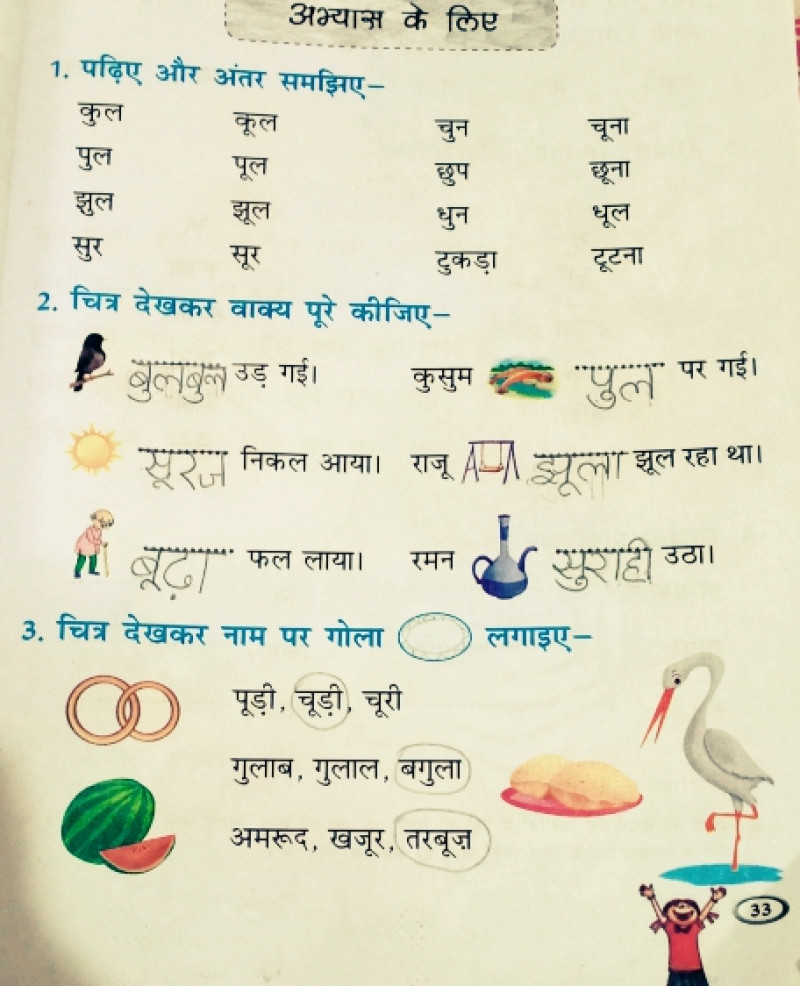 अभ्यास के लिए
1. पढ़िए और अंतर समझिए–
कुल कूल चुन चूना
पुल पूल छुप छूना
झुल झूल धुन धूल
सुर सूर टुकड़ा टूटना
2. चित्र देखकर वाक्य पूरे कीजिए–
बुलबुल उड़ गई। कुसुम पुल पर गई।
सूरज निकल आया। राजू झूला झूल रहा था।
बूढ़ा फल लाया। रमन सुराही उठा।
3. चित्र देखकर नाम पर गोला लगाइए–
पूड़ी, चूड़ी, चूरी
गुलाब, गुलाल, बगुला
अमरूद, खजूर, तरबूज़
33